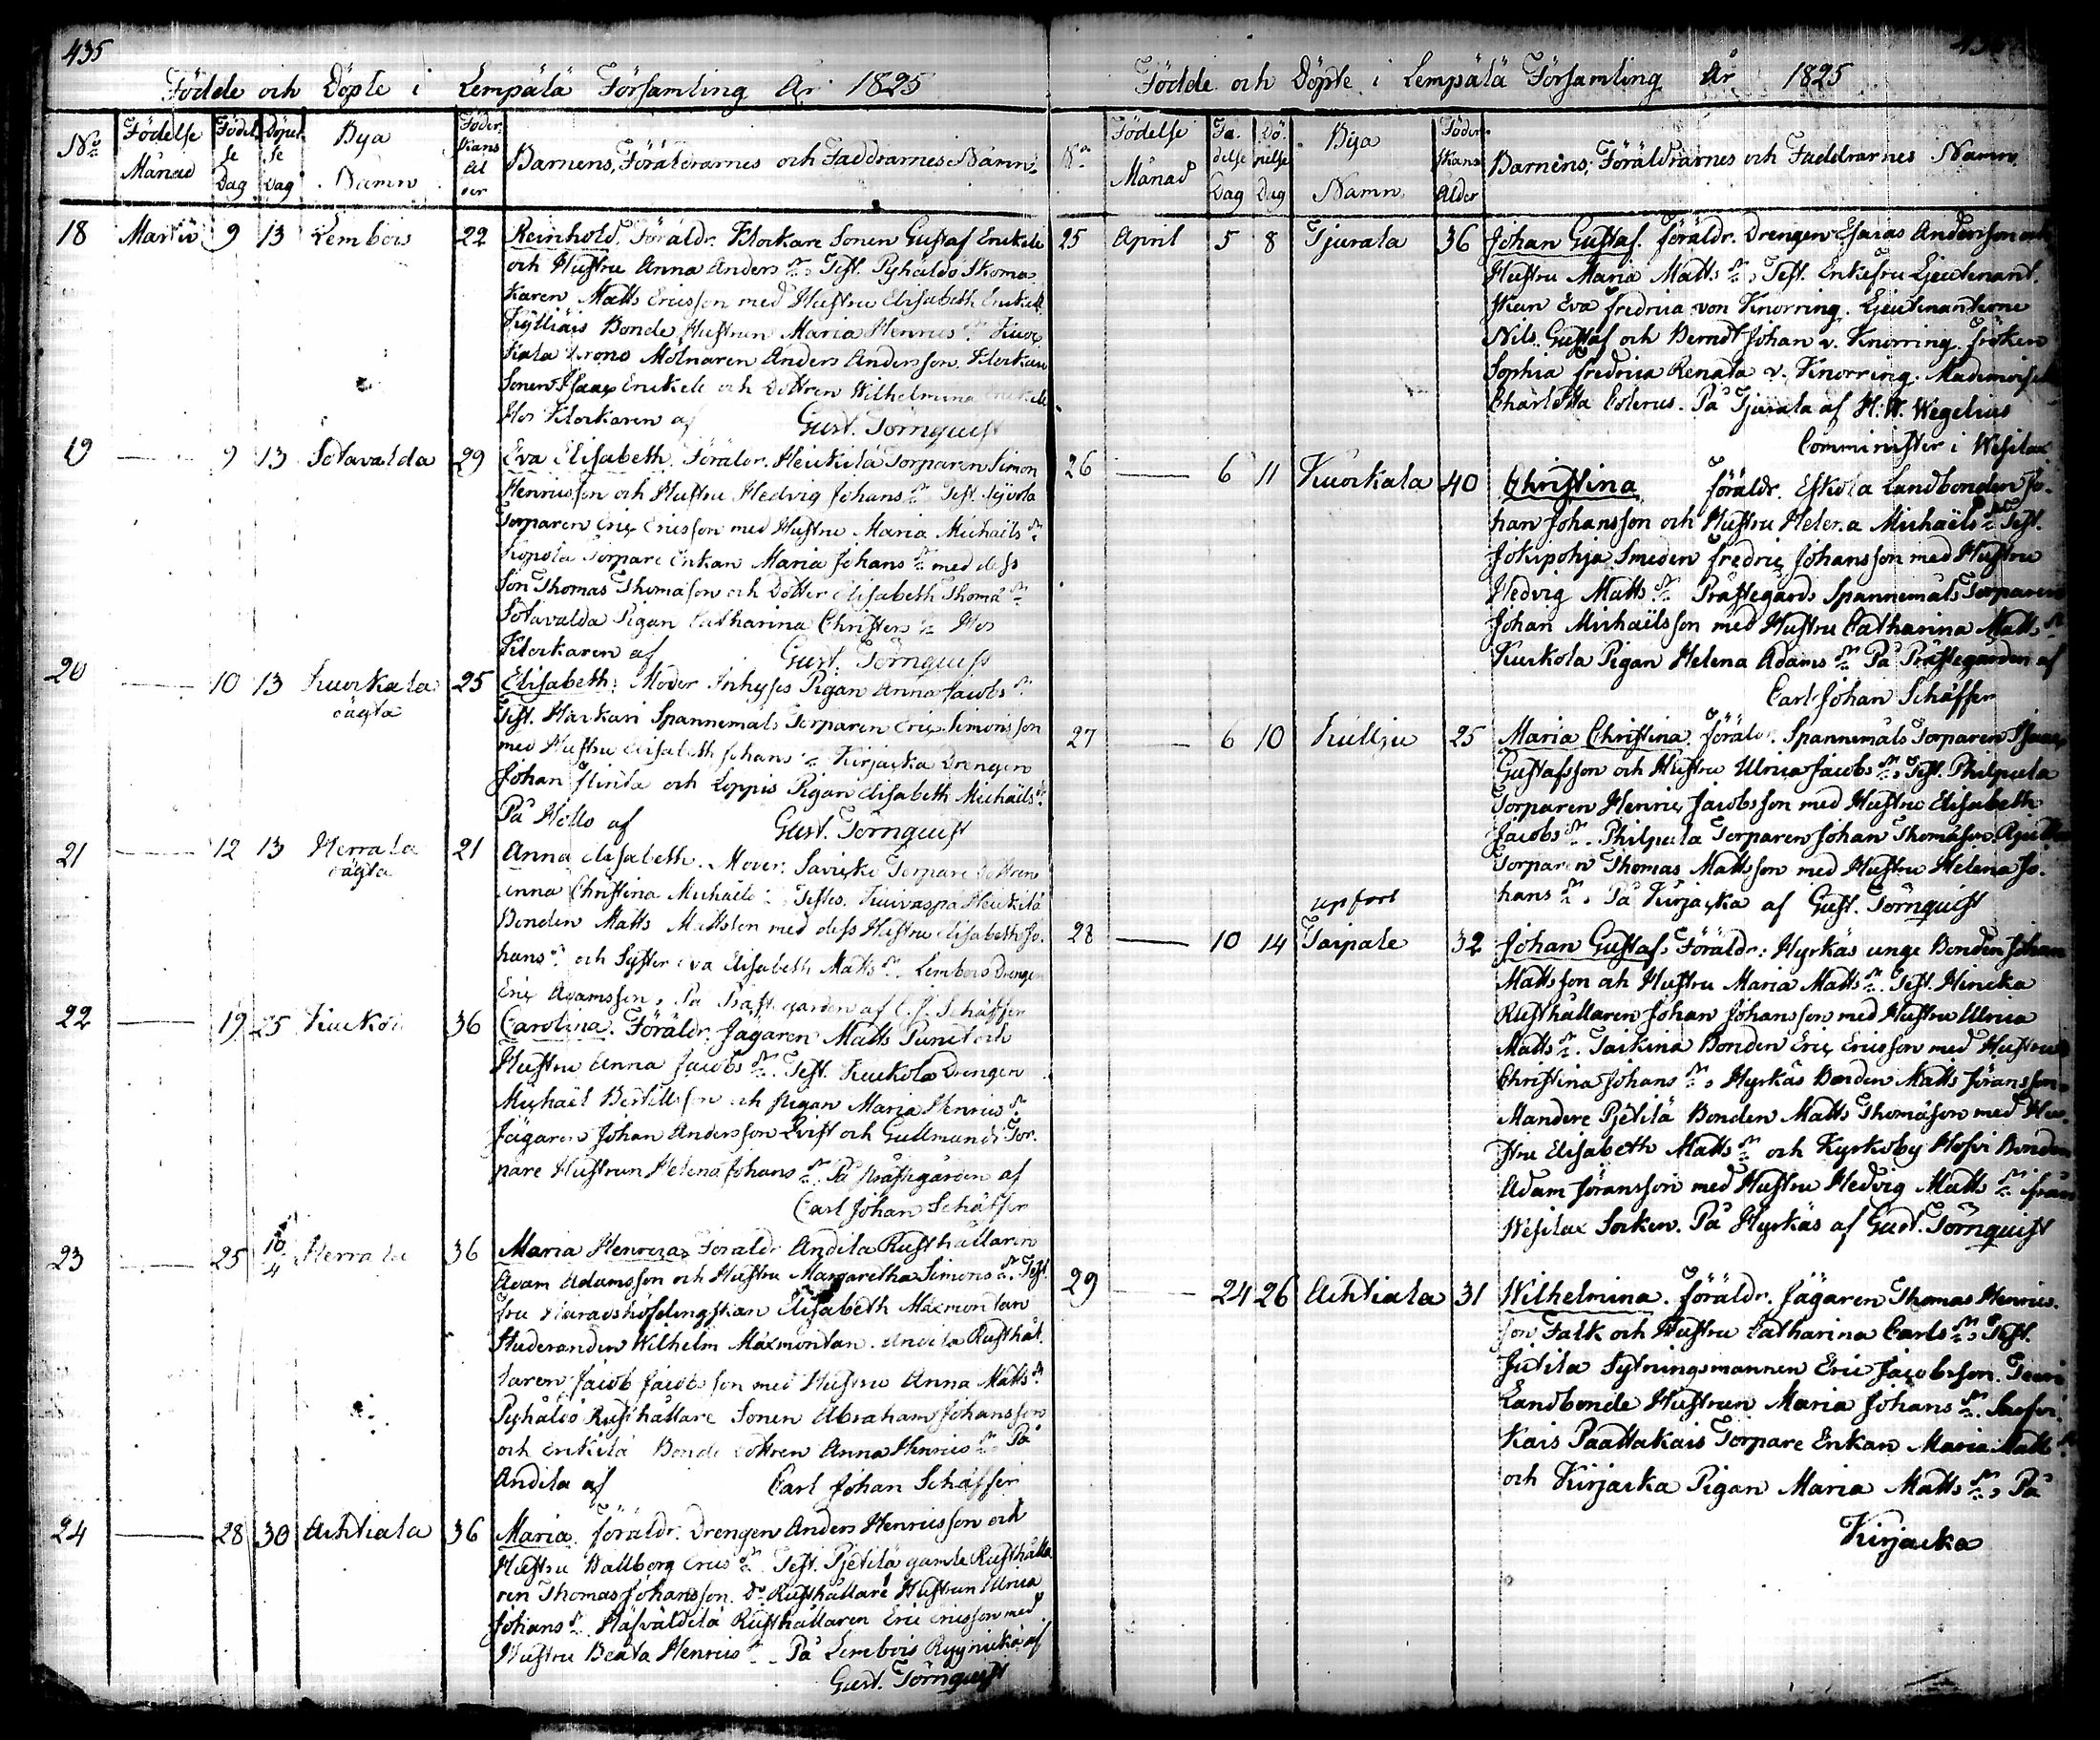 435
Födde och Döpte i Lempälä Församling År 1825
No Födelse Månad Födelse Dag Döpelse Dag Bya Namn Föderskans Ålder Barnens, Föräldrarnes och Faddrarnes Namn
18 Martii 9 13 Lembois 22 Reinhold. Föräldr. Klockare Sonen Gustaf Enckele
och Hustru Anna Anders dr. Test. Pyhäldö Skoma-
karen Matts Ericsson med Hustru Elisabeth Enckell
Bonde Hustrun Maria Henrics dr. Kuor-
kala Krono Mölnaren Anders Andersson. Klockare
Sonen Isaac Enckele och Dottren Wilhelmina Enckele
Hos Klockaren af Gust. Törnquist
19 — 9 13 Sotavalda 29 Eva Elisabeth. Föräldr. Heickilä Torparen Simon
Henricsson och Hustru Hedvig Johans dr. Test.
Torparen Eric Ericsson med Hustru Maria Michaels dr
Torpare Enkan Maria Johans dr med dess
Son Thomas Thomasson och Dotter Elisabeth Thomæ dr
Sotavalda Pigan Catharina Christers dr Hos
Klockaren af Gust. Törnquist
20 — 10 13 Kuorkala 25 Elisabeth. Moder Inhyses Pigan Anna Jacobs dr
oägta Test. Harkari Spannemåls Torparen Eric Simonsson
med Hustru Elisabeth Johans dr Kirjacka Drengen
Johan Flinta och Loppis Pigan Elisabeth Michaels dr
På Hollo af Gust. Törnquist
21 — 12 13 Herrala 21 Anna Elisabeth. Moder. Savicko Torpare Dottren
oägta Anna Christina Michaels dr Testes. Kuivaspä Heickilä
Bonden Matts Mattsson med dess Hustru Elisabeth Jo-
hans dr och Syster Eva Elisabeth Matts dr. Lembois Drengen
Eric Adamsson, På Prästgården af C. J. Schäffer
22 — 19 25 Kuckola 36 Carolina. Föräldr. Jägaren Matts Punct och
Hustru Anna Jacobs dr. Test. Kuckola Drengen
Michaël Bertillsson och Pigan Maria Henrics dr
Jägaren Johan Andersson Qvist och Gullmands Tor-
pare Hustrun Helena Johans dr. På Prästegården af
Carl Johan Schäffer
23 — 25 10/4 Herrala 36 Maria Henrica. Föräldr. Andila Rusthållaren
Adam Adamsson och Hustru Margaretha Simons dr. Test.
Fru Häradshöfdingskan Elisabeth Maxmontan
Studeranden Wilhelm Maxmontan. Andila Rusthål-
laren Jacob Jacobsson med Hustru Anna Matts dr.
Pyhäldö Rusthållare Sonen Abraham Johansson
och Enckilä Bonde Dottren Anna Henrics dr. På
Andila af Carl Johan Schäffer
24 — 28 30 Ahtiala 36 Maria. Föräldr. Drengen Anders Henricsson och
Hustru Wallborg Erics dr. Test. Pjetilä gamle Rusthålla-
ren Thomas Johansson. Do Rusthållare Hustrun Ulrica
Johans dr. Rusthållaren Eric Ericsson med
Hustru Beata Henrics dr. På Lembois af
Gust. Törnquist
Födde och Döpte i Lempälä Församling År 1825
No Födelse Månad Födelse Dag Döpelse Dag Bya Namn Föderskans Ålder Barnens, Föräldrarnes och Faddrarnes Namn
25 April 5 8 Tjurala 36 Johan Gustaf. Föräldr. Drengen Esaias Andersson och
Hustru Maria Matts dr. Test. Enkefru Lieutenant-
skan Eva Fredrica von Knorring. Lieutinanterne
Nils Gustaf och Berndt Johan v. Knorring. Fröken
Sophia Fredrica Renata v. Knorring. Mademoiselle
Charlotta Colerus. På Tjurala af H. W. Wegelius
Comminister i Wesilax
26 — 6 11 Kuorkala 40 Christina Föräldr. Eskola Landbonden Jo-
han Johansson och Hustru Helena Michaëls dr. Test.
Jokipohja Smeden Fredric Johansson med Hustru
Hedvig Matts dr. Prästegårds Spannemåls Torparen
Johan Michaëlsson med Hustru Catharina Matts dr.
Kuckola Pigan Helena Adams dr. På Prästegården af
Carl Johan Schäffer
27 — 6 10 Kullju 25 Maria Christina. Föräldr. Spannemåls Torparen Isaac
Gustafsson och Hustru Ulrica Jacobs dr. Test. Philpula
Torparen Henric Jacobsson med Hustru Elisabeth
Jacobs dr. Philpula Torparen Johan Thomasson.
Torparen Thomas Mattsson med Hustru Helena Jo-
hans dr. På Kirjacka af Gust. Törnquist
upfört
28 — 10 14 Taipale 32 Johan Gustaf. Föräldr: Hyrkäs unge Bonden Johan
Mattsson och Hustru Maria Matts dr. Test. Hincka
Rusthållaren Johan Johansson med Hustru Ulrica
Matts dr. Taickina Bonden Eric Ericsson med Hustru
Christina Johans dr. Hyrkäs Bonden Matts Jöransson
Mandere Pjetilä Bonden Matts Thomasson med Hu-
stru Elisabeth Matts dr och Kyrkoby Hofvi Bonden
Adam Jöransson med Hustru Hedvig Matts dr från
Wesilax Socken. På Hyrkäs af Gust. Törnquist
29 — 24 26 Ahtiala 31 Wilhelmina. Föräldr. Jägaren Thomas Henrics-
son Falk och Hustru Catharina Carls dr. Test.
Sytningsmannen Eric Jacobsson.
Landbonde Hustrun Maria Johans dr.
Paattakais Torpare Enkan Maria Matts dr
och Kirjacka Pigan Maria Matts dr. På
Kirjacka